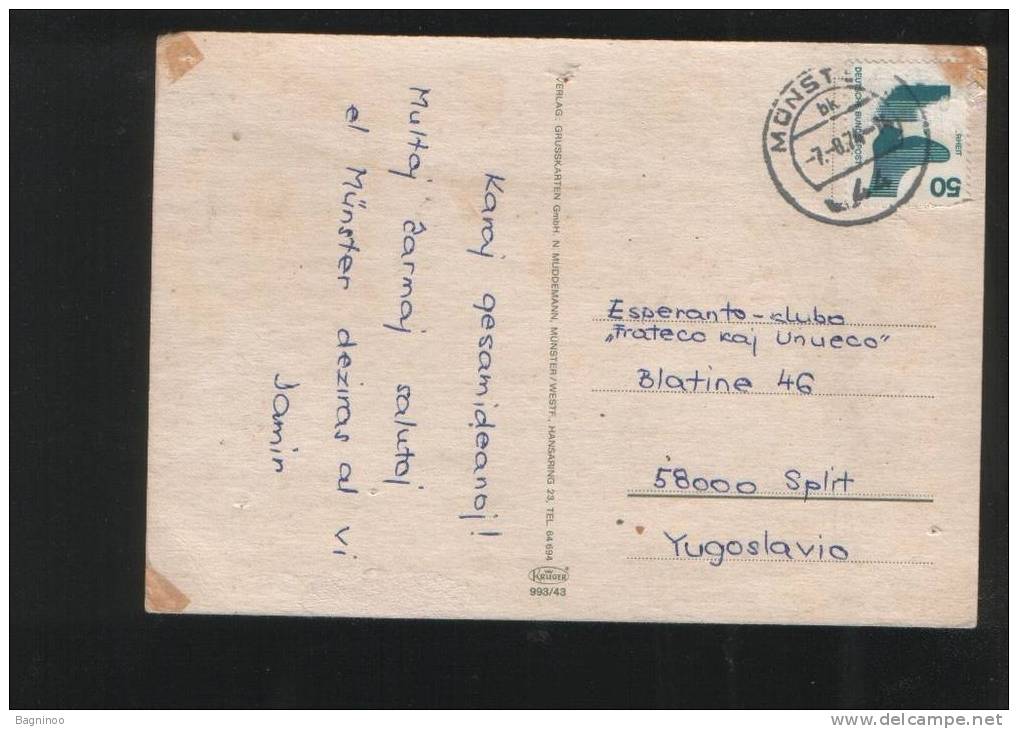 Karaj gesamideanoj!
Multaj ĉarmaj salutaj
el Münster deziras al vi
Jamin
VERLAG: GRUSSKARTEN GmbH. N MUDDEMANN, MÜNSTER/WESTF., HANSARING 23, TEL. 64 694
KRÜGER
993/43
MÜNST
bk
DEUTSCHE BUNDESPOST
RHEIT
50
Esperanto-klubo
„Frateco kaj Unueco”
Blatine 46
58000 Split
Yugoslavio
Bagninoo
www.delcampe.net